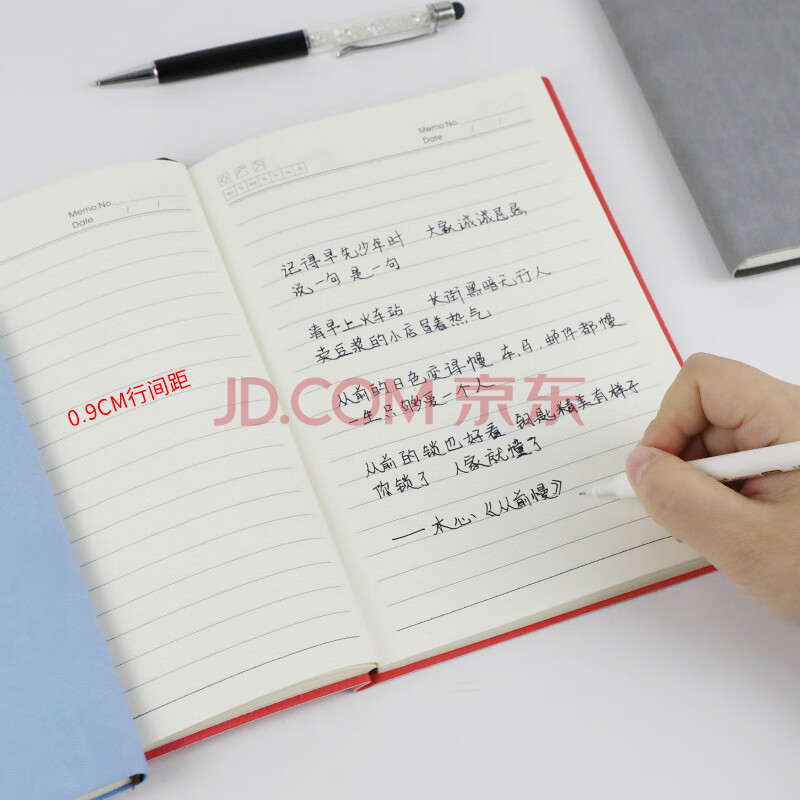 Memo No.
Date / /
0.9CM行间距
Memo No.
Date / /
记得早先少年时 大家诚诚恳恳
说一句 是一句
清早上火车站 长街黑暗无行人
卖豆浆的小店冒着热气
从前的日色变得慢 车,马,邮件都慢
一生只够爱一个人
从前的锁也好看 钥匙精美有样子
你锁了 人家就懂了
——木心《从前慢》
JD.COM 京东